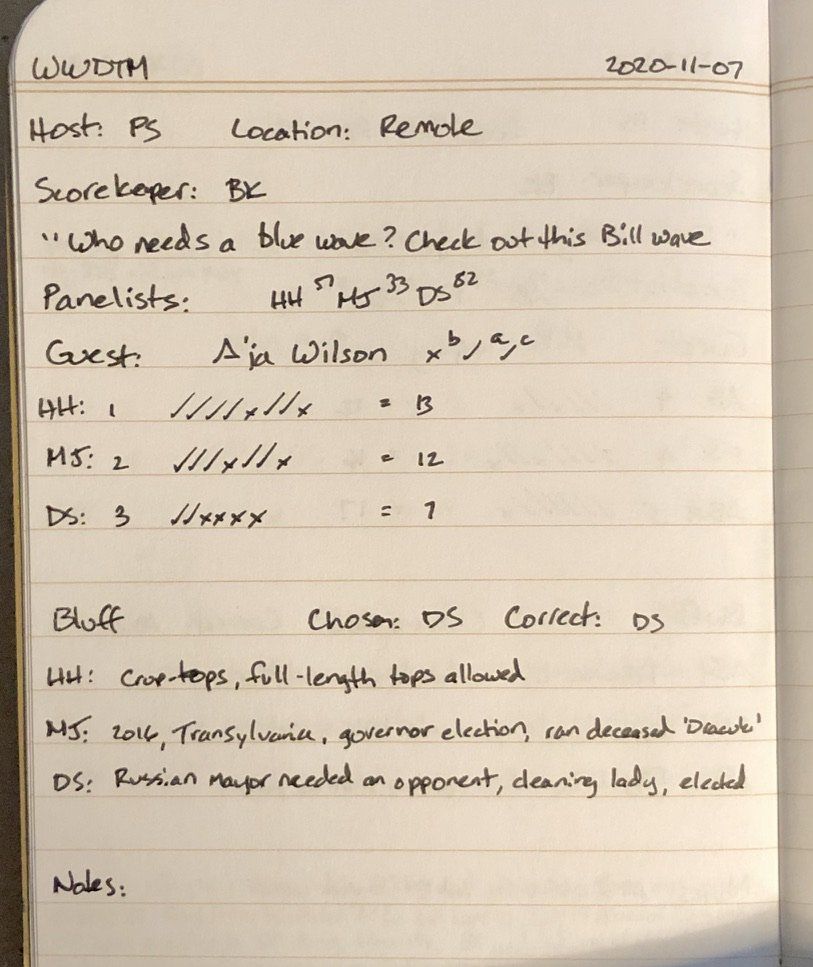 WWDTM 2020-11-07
Host: PS Location: Remote
Scorekeeper: BK
"Who needs a blue wave? Check out this Bill wave
Panelists: HH 57 MJ 33 DS 82
Guest: A'ja Wilson x b ✓ a,c
HH: 1 ////x//x = 13
MJ: 2 ///x//x = 12
DS: 3 //xxxx = 7
Bluff Chosen: DS Correct: DS
HH: Crop-tops, full-length tops allowed
MJ: 2016, Transylvania, governor election, ran deceased 'Dracula'
DS: Russian Mayor needed an opponent, cleaning lady, elected
Notes: